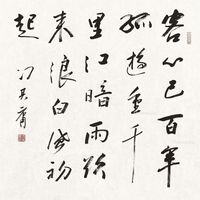 客心已百年
孤遊重千
里江暗雨欲
来浪白风初
起
冯其庸